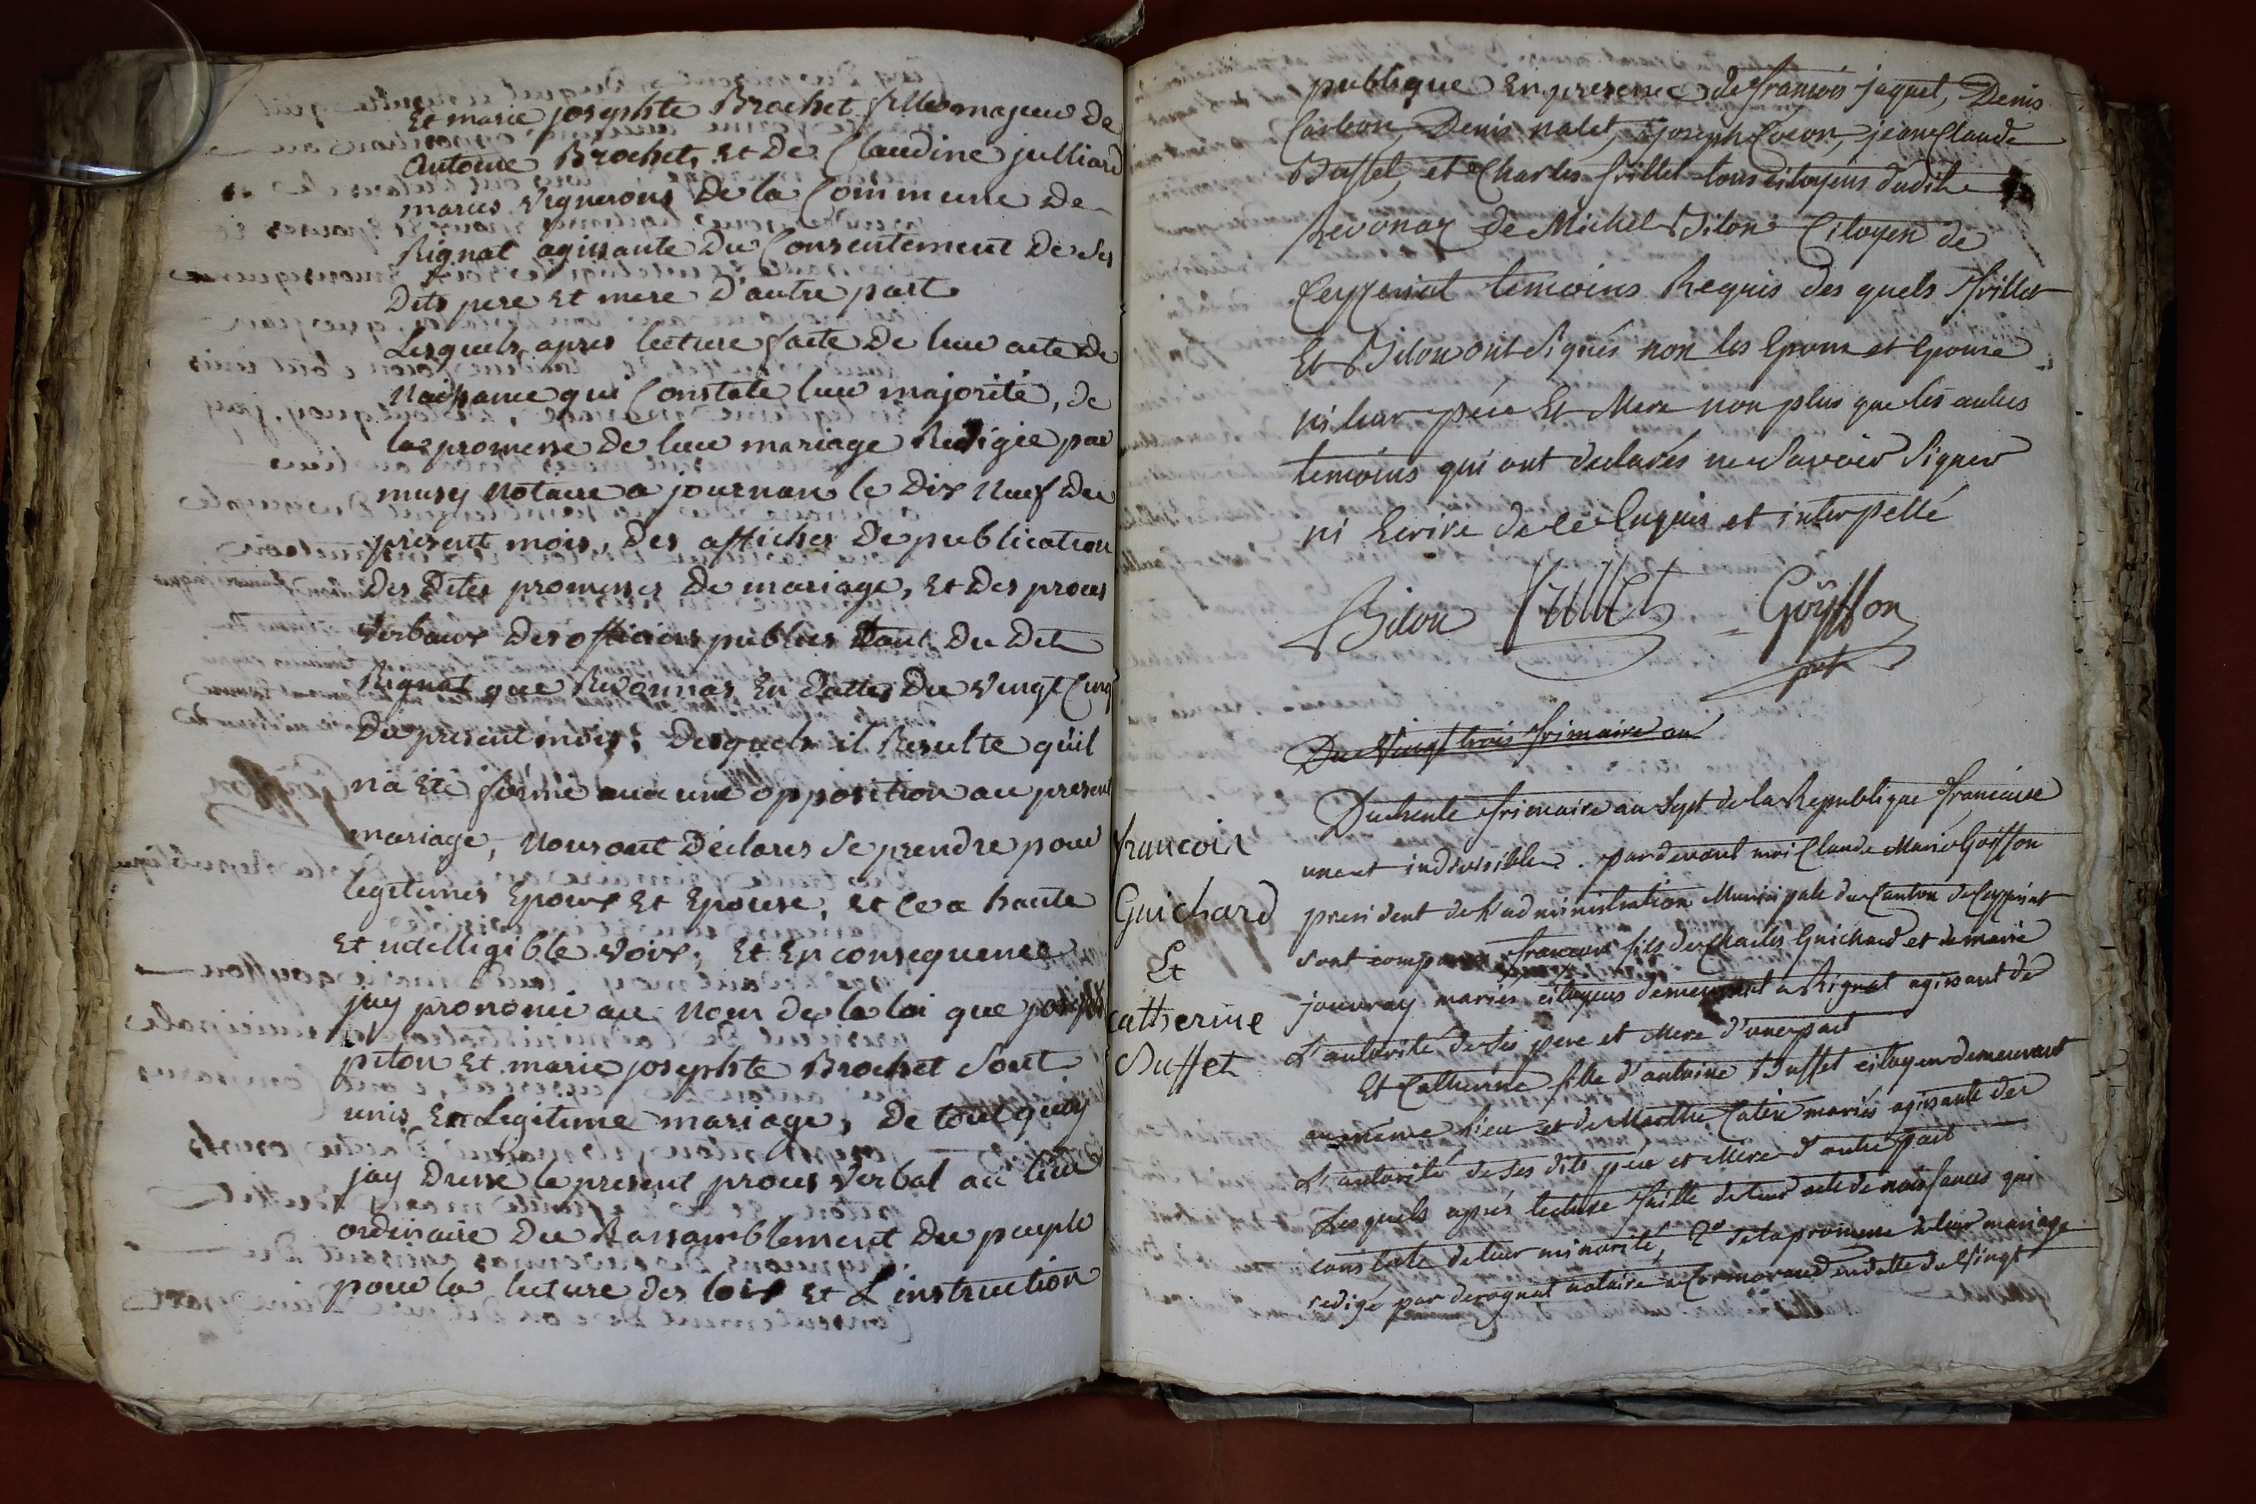 Et marie josephte Brochet fille majeur de
Antoine Brochet, et De Claudine julliard
mariés vignerons De la Commune De
Rignat agissante Du Consentement De Ses
Dits pere et mere D'autre part
Lesquels apres lecture faite De leur acte de
Naissance qui Constate leur majorité, de
la promesse de leur mariage Redigée par
musy Notaire a journan le Dix Neuf du
present mois, Des affiches De publication
Des Dites promesses De mariage, et Des procès
verbaux Des officiers publics tant Du Dit
Rignat que Revonnas En Dattes Du vingt Cinq
Du present mois, Desquels il Resulte qu'il
n'a Eté formé aucune opposition au present
mariage, Nous ont Déclarés Se prendre pour
legitimes Epoux Et Epouse, et Ce a haute
Et intelligible voix, Et En consequence
jay prononcé au Nom de la loi que joseph
piton Et marie josephte Brochet Sont
unis En Legitime mariage, De tout quoy
jay Dressé le present procès verbal au lieu
ordinaire Du Rassamblement Du peuple
pour la lecture des loix Et L'instruction
publique En presence de francois jaquet, Denis
Denis nalet, joseph jean Claude
Buffet, et Charles frillet tous citoyens dudit
Revonaz de Michel Bilon Citoyen de
Ceyzeriat temoins Requis des quels frillet
Et Bilon ont Signés non les Epoux et Epouse
ni leur père Et Mere non plus que les autres
temoins qui ont declarés ne Savoir Signer
ni Ecrire de ce Enquis et interpellé
Bilon frillet Goiffon
pst
Du Vingt trois frimaire an
Du trente frimaire an Sept de la Republique francaise
une et indivisible. par devant moi Claude Marie Goiffon
president de l'administration Municipale du Canton de Ceyzeriat
sont comparus francois fils de Charles Guichard et de marie
jouvray mariés citoyens demeurant a Rignat agissant de
L'autorité de Ses pere et Mere d'une part
Et Catherine fille d'antoine Buffet citoyen demeurant
au même lieu et de Marthe mariés agissante de
L'autorité de ses dits père et Mere d'autre part
Lesquels après lecture faitte de leur acte de naissances qui
constate de leur minorité, 2° de la promesse de leur mariage
redigé par derognat notaire a Cormoranche en datte du Vingt
francois
Guichard
Et
catherine
Buffet